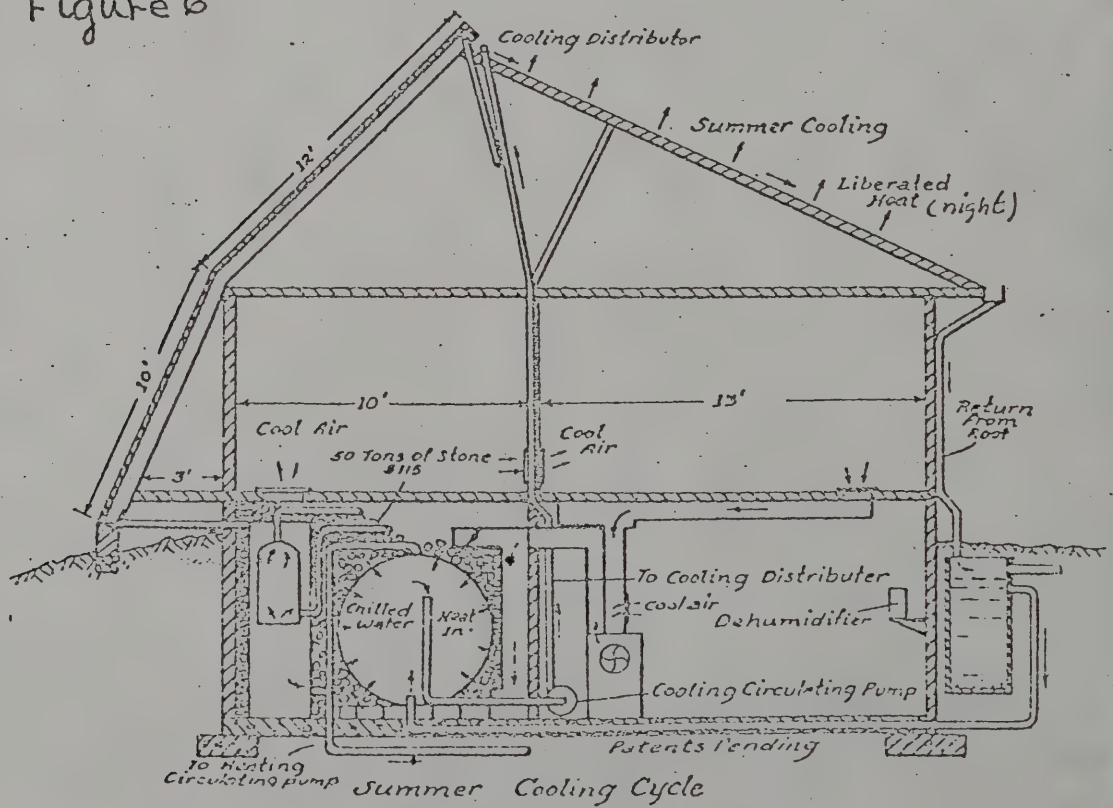 Figure 6
Cooling Distributor
Summer Cooling
Liberated
Heat (night)
12'
10'
10'
13'
Cool Air
50 Tons of Stone
$115
Cool
Air
Return
From
Roof
3'
To Cooling Distributer
Cool air
Dehumidifier
Chilled
Water
Heat
In
Cooling Circulating Pump
Patents Pending
To Heating
Circulating pump
Summer Cooling Cycle